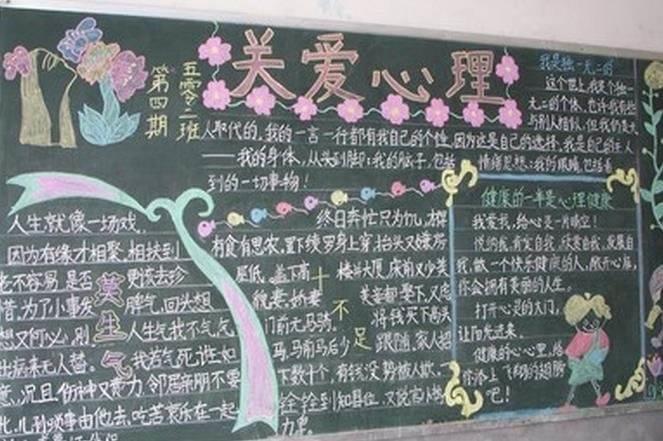 关爱心理
第四期
五零二班
我是独一无二的
这个世上,我是个独一
无二的个体,也许我有些
与别人相似,但我仍是无
人取代的。我的一言一行都有我自己的个性,因为这是自己的选择。我是自己的主人
——我的身体,从头到脚:我的脑子,包括
情绪思想:我的眼睛,包括看
到的一切事物!
人生就像一场戏,
因为有缘才相聚,相扶到
老不容易,是否 更该去珍
惜,为了小事发 脾气,回头想
想又何必,别 人生气我不气,气
出病来无人替。我若气死谁如
意,况且伤神又费力,邻居亲朋不要
比,儿孙琐事由他去,吃苦享乐在一起
莫生气
终日奔忙只为饥,才得
有食有思衣,置下绫罗身上穿,抬头又嫌房
屋低,盖下高 楼与大厦,床前又少美
貌妻,娇妻 美妾都娶下,又虑
门前无马骑。 将钱买下高头
马,马前马后少 跟随,家人招
下数十个,有钱没势被人欺。一
铨铨到知县位,又说官小
十不足
健康的一半是心理健康
我爱我,给心灵一片晴空!
悦纳我,肯定自我,欣赏自我,发展自
我,做一个快乐健康的人,敞开心扉,
你会拥有美丽的人生。
打开心灵的大门,
让阳光进来。
健康的心心里,给
你添上飞翔的翅膀
吧!